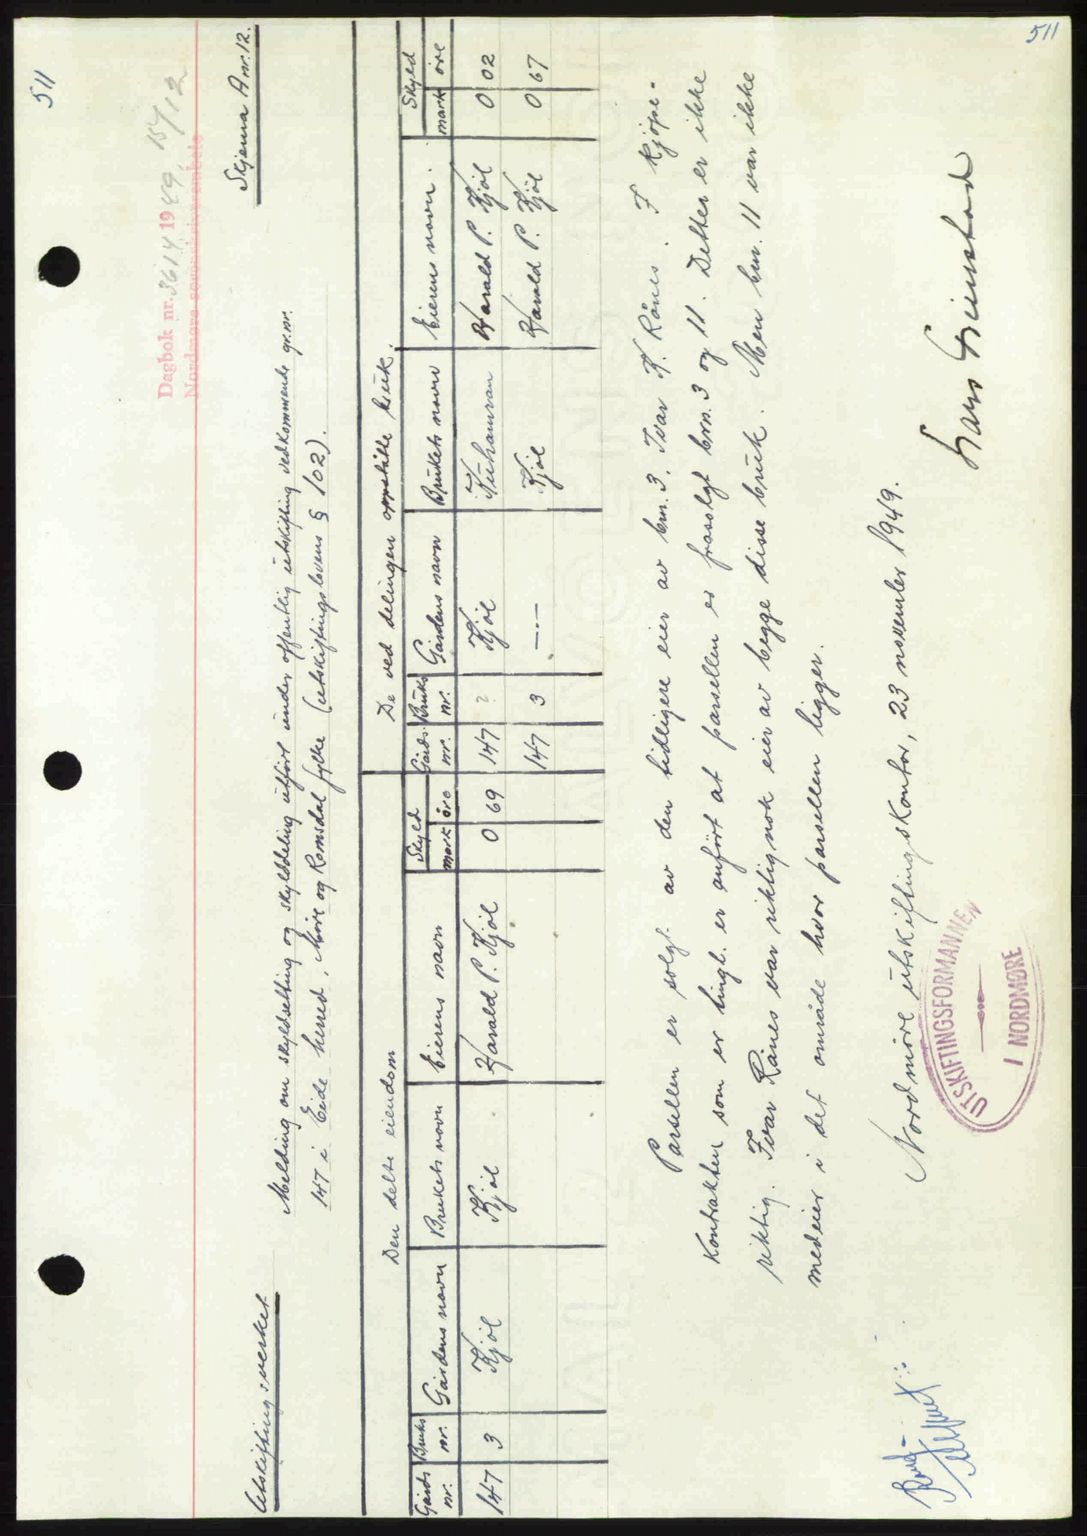 511
511
Dagbok nr. 3614 1949, 15/12
Nordmøre sorenskriverembete
Utskiftingsverket
Skjema A nr. 12.
Melding om skyldsetting og skylddeling utført under offentlig utskifting vedkommende gr.nr.
147 i Eide herred, Møre og Romsdal fylke (utskiftingslovens § 102).
Den delte eiendom
De ved delingen oppståtte bruk.
Gårds nr. Bruks nr. Gårdens navn Brukets navn Eierens navn Skyld mark øre Gårds nr. Bruks nr. Gårdens navn Brukets navn Eierens navn. Skyld mark øre
147 3 Kjøl Kjøl Harald P. Kjøl 0 69 147 ? Kjøl Harald P. Kjøl 0 02
147 3 —"— Kjøl Harald P. Kjøl 0 67
Parsellen er solgt av den tidligere eier av brn. 3. Ivar K. Rånes. I kjøpe-
kontrakten som er tingl. er anført at parsellen er frasolgt brn. 3 og 11. Dette er ikke
riktig. Ivar Rånes var riktignok eier av begge disse bruk. Men brn. 11 var ikke
medeier i det område hvor parsellen ligger.
Nordmøre utskiftingskontor, 23 november 1949.
UTSKIFTINGSFORMANNEN
I NORDMØRE